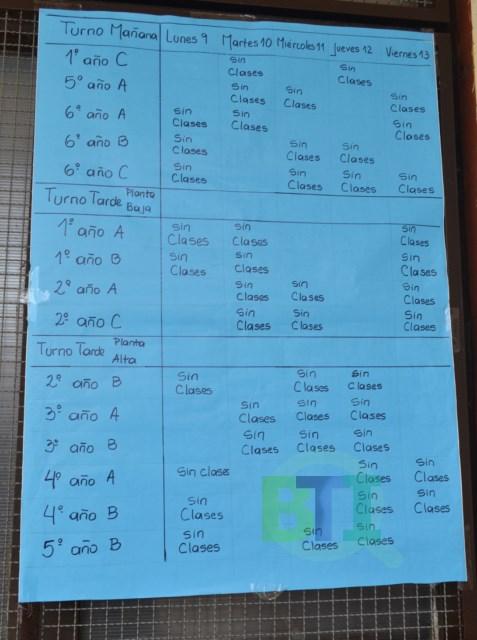 Turno Mañana Lunes 9 Martes 10 Miércoles 11 Jueves 12 Viernes 13
1º año C Sin Clases Sin Clases
5º año A Sin Clases Sin Clases Sin Clases
6º año A Sin Clases Sin Clases Sin Clases
6º año B Sin Clases Sin Clases Sin Clases
6º año C Sin Clases Sin Clases Sin Clases Sin Clases
Turno Tarde Planta Baja
1º año A Sin Clases Sin Clases Sin Clases
1º año B Sin Clases Sin Clases Sin Clases
2º año A Sin Clases Sin Clases Sin Clases
2º año C Sin Clases Sin Clases Sin Clases
Turno Tarde Planta Alta
2º año B Sin Clases Sin Clases Sin Clases
3º año A Sin Clases Sin Clases Sin Clases
3º año B Sin Clases Sin Clases Sin Clases
4º año A Sin clases Sin Clases Sin Clases
4º año B Sin Clases Sin Clases Sin Clases
5º año B Sin Clases Sin Clases Sin Clases